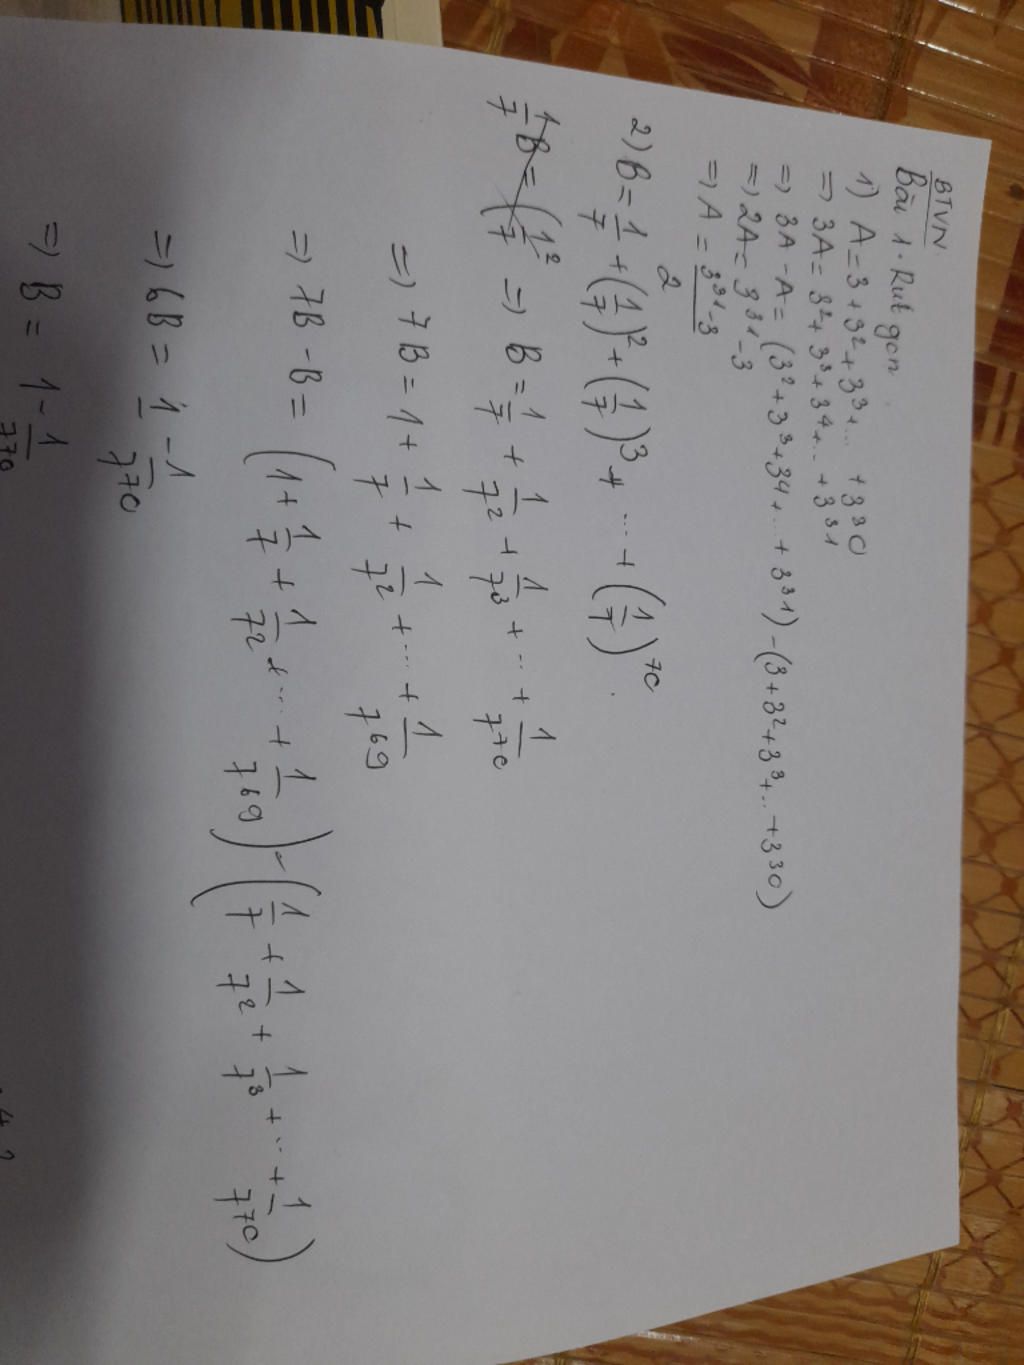 BTVN.
Bài 1. Rút gọn
1) A = 3 + 3² + 3³ + ... + 3³⁰
=> 3A = 3² + 3³ + 3⁴ + ... + 3³¹
=> 3A - A = (3² + 3³ + 3⁴ + ... + 3³¹) - (3 + 3² + 3³ + ... + 3³⁰)
=> 2A = 3³¹ - 3
=> A = (3³¹ - 3)/2
2) B = 1/7 + (1/7)² + (1/7)³ + ... + (1/7)⁷⁰.
=> B = 1/7 + 1/7² + 1/7³ + ... + 1/7⁷⁰
=> 7B = 1 + 1/7 + 1/7² + ... + 1/7⁶⁹
=> 7B - B = (1 + 1/7 + 1/7² + ... + 1/7⁶⁹) - (1/7 + 1/7² + 1/7³ + ... + 1/7⁷⁰)
=> 6B = 1 - 1/7⁷⁰
=> B = 1 - 1/7⁷⁰